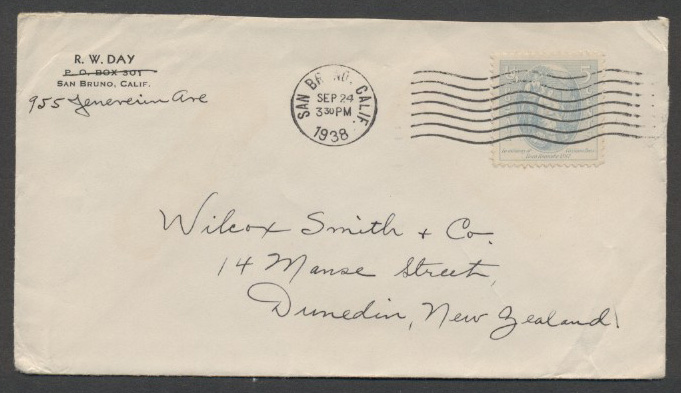 R. W. DAY
P. O. BOX 301
SAN BRUNO, CALIF.
955 Jenevein Ave
SAN BRUNO, CALIF.
SEP 24
3 30 PM
1938
5
Wilcox Smith & Co.
14 Manse Street,
Dunedin, New Zealand